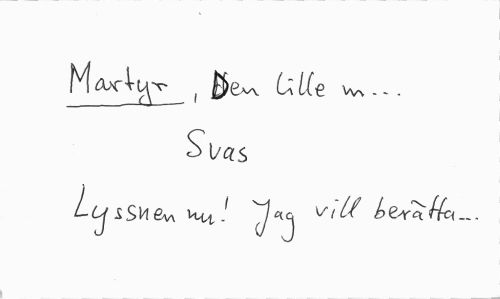 Martyr, Den lille m...
Svas
Lyssnen nu! Jag vill berätta...